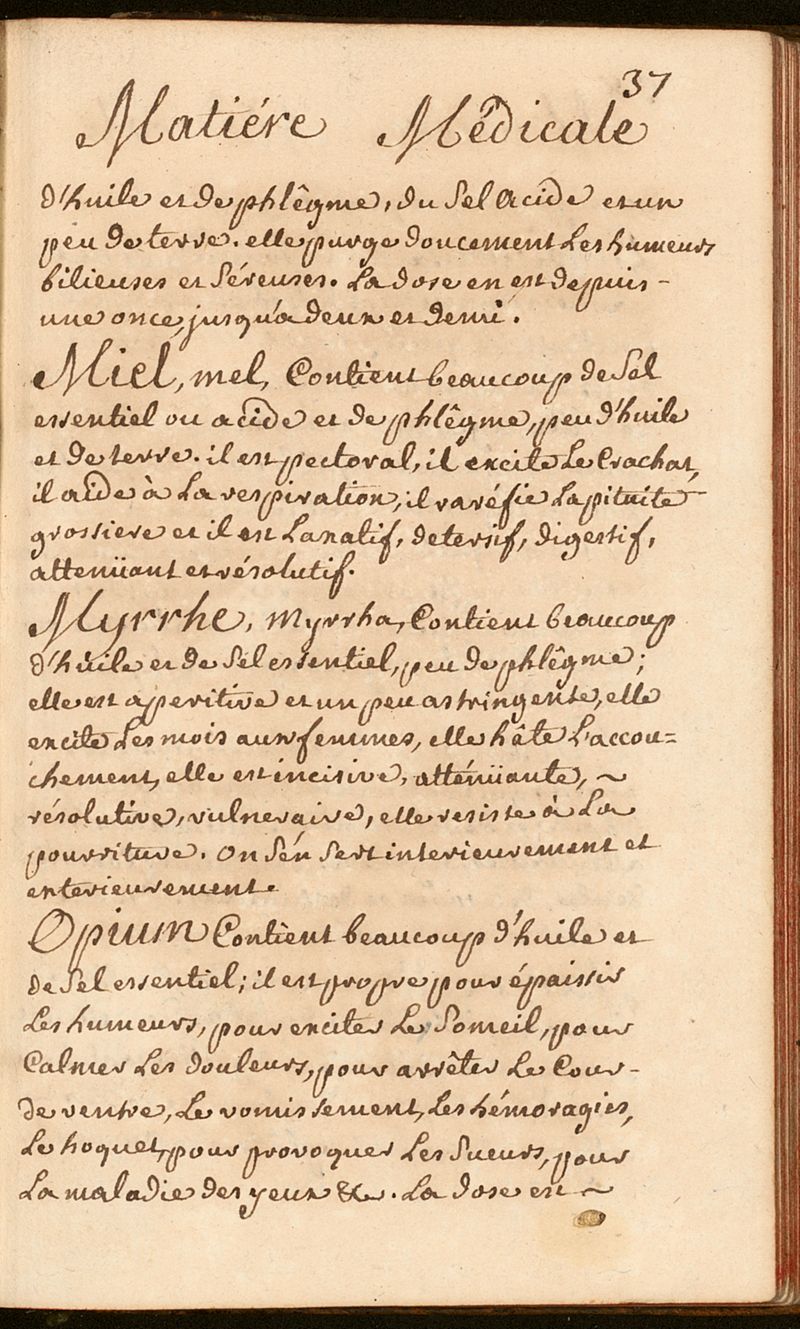 37
Matiére Médicale
d'huile et de phlêgme, du Sel acide et un
peu de terre. elle purge doucement Les humeurs
bilieuses et Séreuses. La dose en est depuis -
une once, jusqu'a deux et demi.
Miel, mel, Contient beaucoup de Sel
essentiel ou acide et de phlêgme, peu d'huile
et de terre. il est pectoral, il excite Le Crachat,
il aide à La respiration, il raréfie La pituite
grossiere et il est Laxatif, detersif, digestif,
attenüant et résolutif.
Myrrhe, Myrrha, Contient beaucoup
d'huile et de Sel essentiel, peu de phlêgme;
elle est aperitive et un peu astringente, elle
excite Les mois aux femmes, elle hâte L'accou=
chement, elle est incisive, atténüante, ~
résolutive, vulneraire, elle resiste à La
pourriture. On S'én Sert interieurement et
exterieurement.
Opium Contient beaucoup d'huile et
de Sel essentiel; il est propre pour épaissir
Les humeurs, pour exciter Le Someil, pour
Calmer Les douleurs, pour arrêter Le Cour-
de ventre, Le vomissement, Les hémoragies,
Le hoquet, pour provoquer Les Sueurs, pour
La maladie des yeux &c. La dose est ~